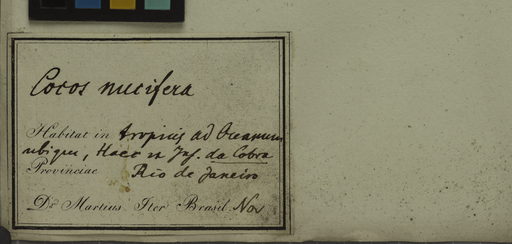 Cocos nucifera
Habitat in tropicis ad Oceanum
ubique, Haec ex Ins. da Cobra
Provinciae Rio de Janeiro
Dr. Martius Iter Brasil. Nov